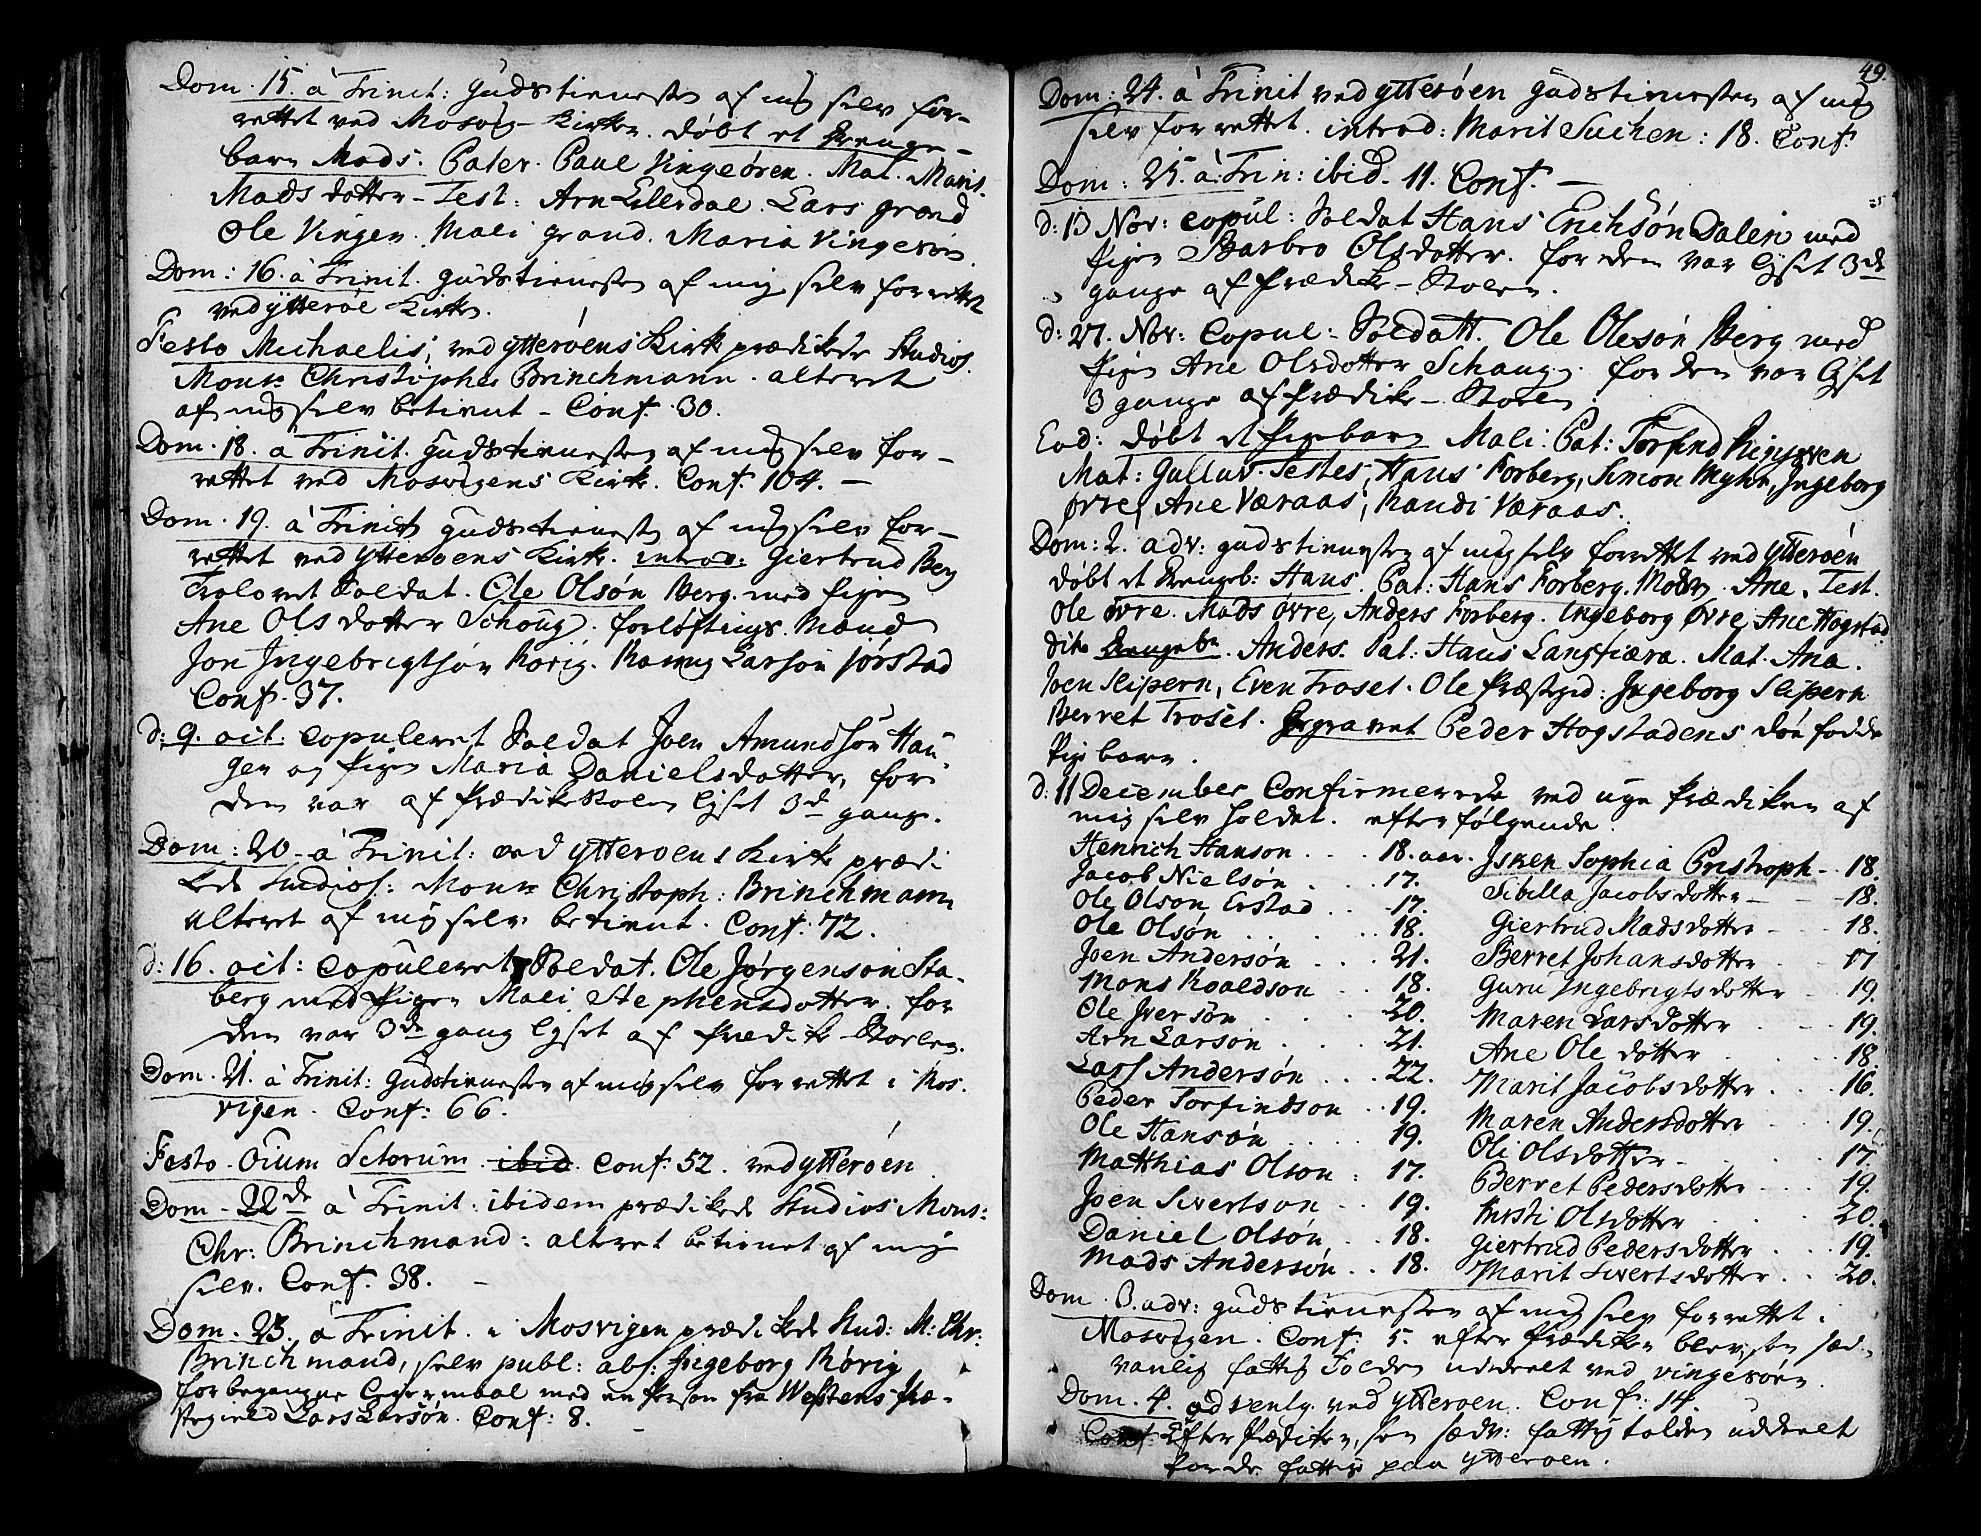 Dom. 15. à Trinit: Gudstienesten af mig selv for-
rettet ved Mosvig-Kirken. døbt et drenge-
barn Mads. Pater. Paul Vingeøren. Mat. Marit
Mads dotter - Test: Arn Lillesdal. Lars grand
Ole Vingen. Mali grand. Maria Vingesøen
Dom: 16. à Trinit. Gudstienesten af mig selv forrettet
ved ytterøe Kirke.
Festo Michaelis, ved ytterøens Kirk prædikede Studios.
Monsr Christopher Brinchmann. alteret
af mig selv betient - Conf. 30.
Dom. 18. à Trinit. Gudstienesten af mig selv for-
rettet ved Mosvigens Kirk. Conf. 104. -
Dom. 19. à Trinit Gudstienesten af mig selv for-
rettet ved ytterøens Kirk. introd: Giertrud Berg
Trolovet Soldat. Ole Olsøn Berg. med pigen
Ane Ols dotter Schoug. forløftings. Mænd
Jon Ingebrigtsøn Rørig. Rasmus Larsøn Jørstad
Conf. 37.
d: 9. oct: copuleret Soldat Joen Amundsøn Hau-
gen og pigen Maria Danielsdotter, for
dem var af PrædikeStolen lyset 3de gange.
Dom: 20. à Trinit: ved ytterøens Kirk prædi
kede Studios: Monsr Christoph: Brinchmann
alteret af mig selv betient. Conf: 72.
d: 16. oct: Copuleret Soldat. Ole Jørgensøn Sta-
berg med Pigen Mali Stephensdotter. for
dem var 3de gang lyset af Prædike-Stolen.
Dom. 21. à Trinit: Gudstienesten af mig selv forrettet i Mos-
vigen. Conf: 66.
Festo. Oium Sctorum. ibid. Conf: 52. ved ytterøen
Dom. 22de à Trinit: ibidem prædikede Studios Mons:
Chr: Brinchmand: alteret betienet af mig
selv. Conf. 38. -
Dom. 23. à Trinit. i Mosvigen prædikede Stud: M: Chr:
Brinchmand, selv publ: abs: Ingeborg Rørig
for begangne Leyermaal med en Person fra Præ-
stegield Lars Larsøn. Conf: 8.
49.
Dom: 24. à Trinit ved ytterøen Gudstienesten af mig
selv forrettet. introd: Marit Suchen: 18. Conf.
Dom: 25. à Trin: ibid. 11. Conf. -
d: 13 Nov: copul: Soldat Hans Erichsøn Dalen med
pigen Barbro Olsdotter. for dem var lyset 3de
gange af Prædike-Stolen.
d: 27. Nov: Copul: Soldatt. Ole Olesøn Berg med
Pigen Ane Olsdotter Schaug. for dem var lyset
3 gange af Prædike-Stolen.
Eod: døbt et Pigebarn Mali. Pat: Torfind
Mat: Gullav. Testes, Hans Forberg, Simon Myhr, Ingeborg
Øvre, Ane Væraas, Randi Væraas.
Dom: 2. adv: gudstienesten af mig selv forrettet ved ytterøen
døbt et drengeb: Hans. Pat: Hans Forberg. Moder. Ane. Test.
Ole øvre. Mads øvre, Anders Forberg. Ingeborg Øvre, Ane Hogstad
dito drengebn. Anders. Pat: Hans Langfiæra. Mat. Ana.
Joen Slipern, Even Troset. Ole Præstegd: Ingeborg Slipern
Berret Troset. Begravet Peder Hogstadens død fødde
Pige barn.
d: 11 December Confirmerede ved uge Prædiken af
mig selv holdet. efterfølgende.
Henrich Hanson . . . 18. aar. Isken Sophia Pristroph - 18.
Jacob Nielsøn . . . 17. Sibilla Jacobsdotter - 18.
Ole Olson Erstad . . 17. Giertrud Madsdotter - 18.
Ole Olsøn . . . 18. Berret Johansdotter 17
Joen Andersøn . . . 21. Guru Ingebrigtsdotter 19.
Mons Roaldson . . 18. Maren Larsdotter 19.
Ole Iversøn . . . 20. Ane Ole dotter 18.
Arn Larson . . . 21. Marit Jacobsdotter . . 16.
Lars Andersøn . . . 22. Maren Andersdotter 19.
Peder Torfindson . . 19. Oli Olsdotter 17.
Ole Hansøn . . . 19. Berret Pedersdotter . . 19.
Matthias Olson . 17. Kirsti Olsdotter . . 20.
Joen Sivertson . . 19. Giertrud Pedersdotter . . 19.
Daniel Olsøn . . 18. Marit Sivertsdotter . . 20.
Mads Andersøn . . 18.
Dom. 3. adv: gudstienesten af mig selv forrettet i
Mosvigen. Conf: 5. efter Prædiken blev, som sæd-
vanlig fattig Tolden uddeelt ved vingesøen.
Dom. 4. advent, ved ytterøen. Conf: 14.
Efter Prædiken, som sædv: fattig tolden uddeelt
for de fattige paa ytterøen.